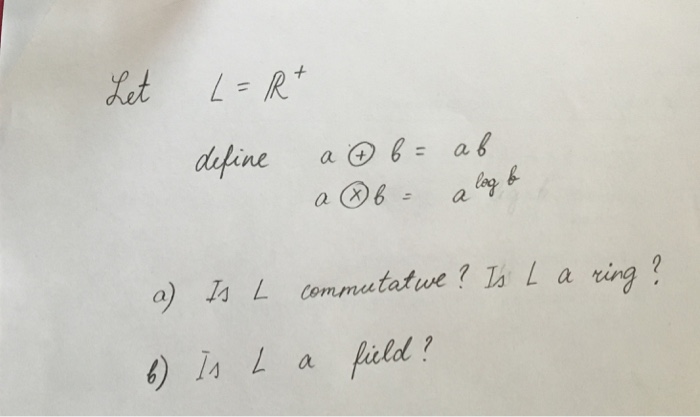 Let L = R⁺
define a ⊕ b = ab
a ⊗ b = a^log b
a) Is L commutatwe? Is L a ring?
b) Is L a field?